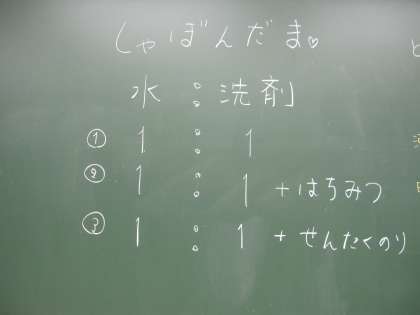 しゃぼんだま♡
水:洗剤
① 1:1
② 1:1+はちみつ
③ 1:1+せんたくのり